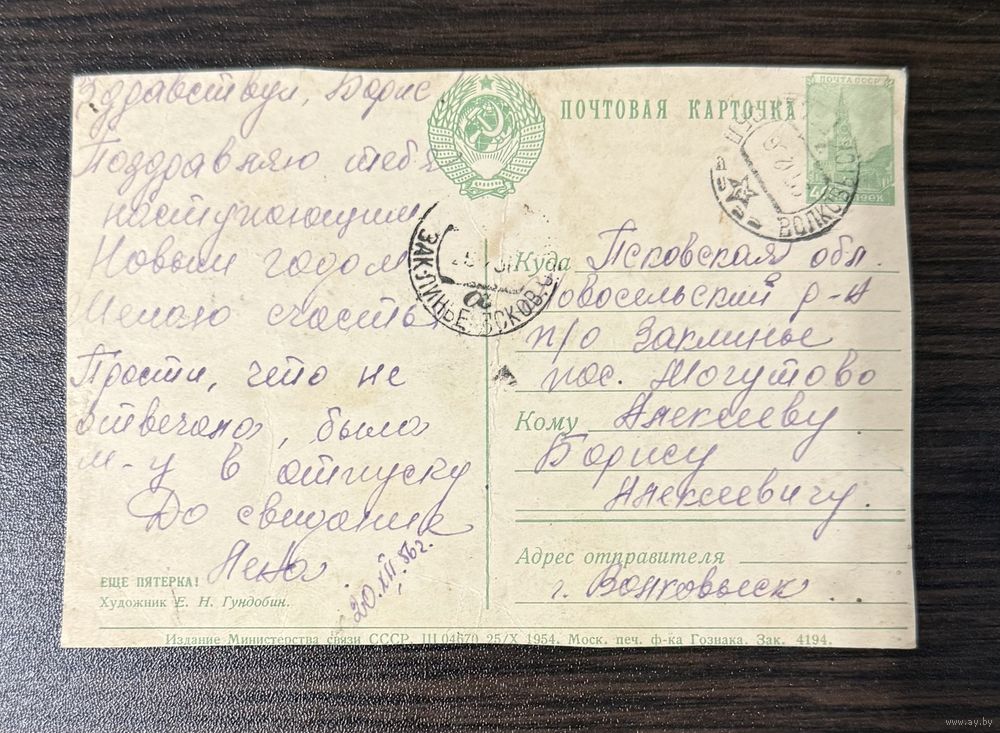 Здравствуй, Борис
Поздравляю тебя
наступающим
Новым годом
Желаю счастья
Прости, что не
отвечала, была
м-у в отпуску
До свидание
Лена
20.XII.56г.
ЕЩЕ ПЯТЕРКА!
Художник Е. Н. Гундобин.
ПОЧТОВАЯ КАРТОЧКА
ПОЧТА СССР
ВОЛКОВЫСК
ЗАКЛИНЬЕ ПСКОВ.
Куда Псковская обл.
Новосельский р-н
п/о Заклинье
пос. Могутово
Кому Алексееву
Борису
Алексеевичу.
Адрес отправителя
г. Волковыск
Издание Министерства связи СССР. Ш 04670 25/X 1954. Моск. печ. ф-ка Гознака. Зак. 4194.
www.ay.by